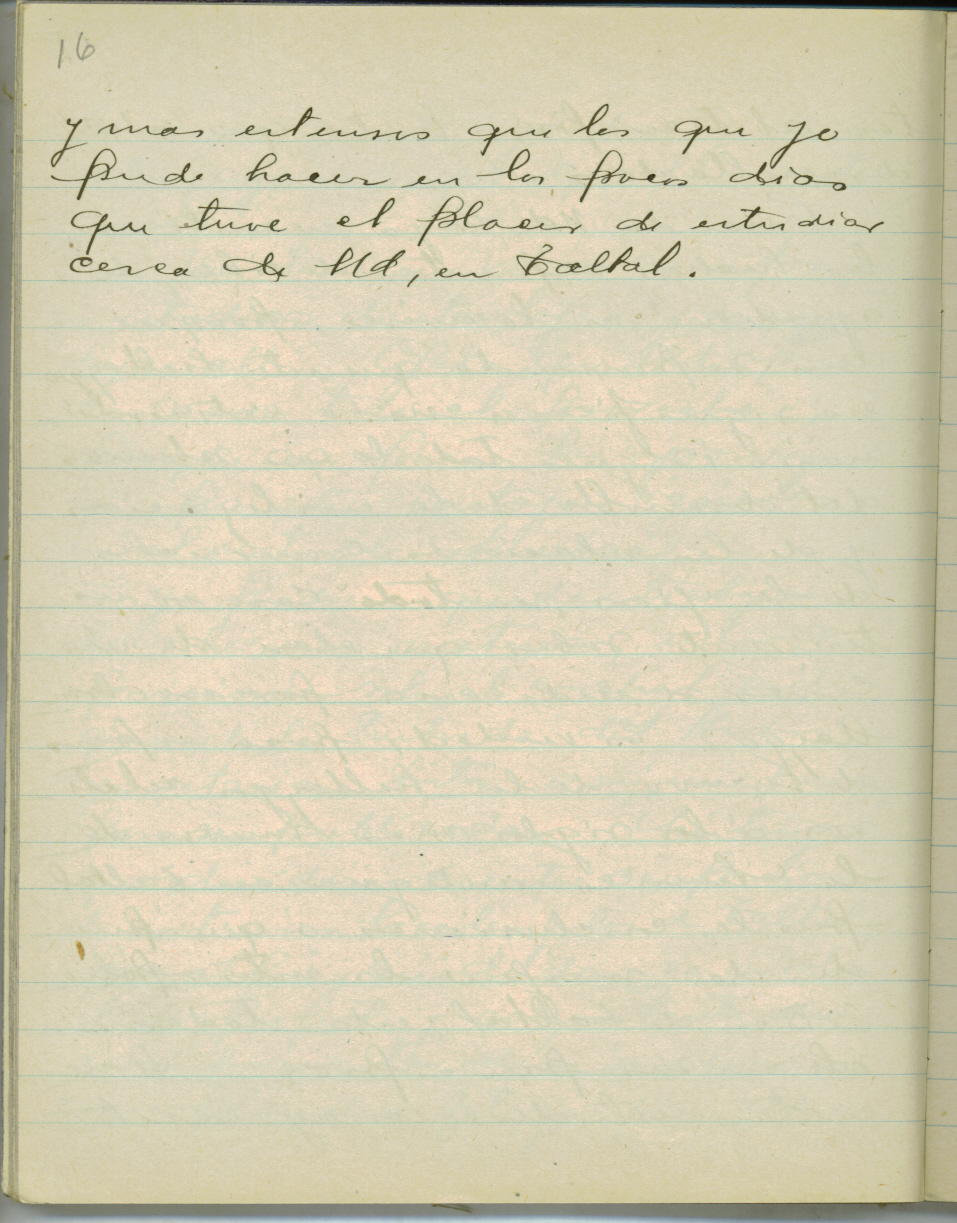 16
y mas estensos que los que yo
pude hacer en los pocos dias
que tuve el placer de estudiar
cerca de Ud, en Taltal.